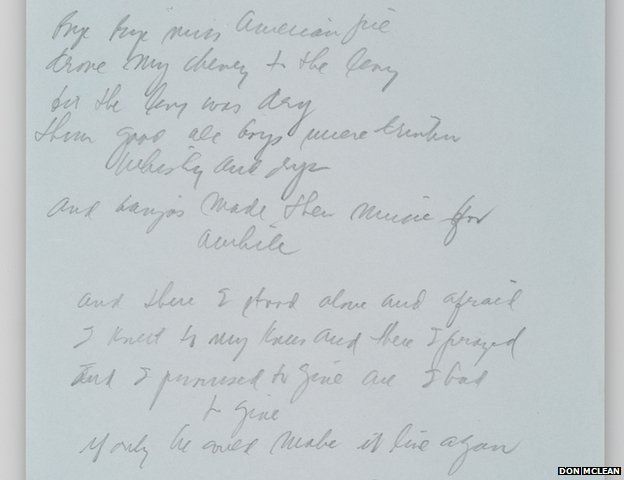 Bye bye miss American pie
drove my chevy to the levy
but the levy was dry
them good ole boys were drinkin
Whisky and rye
And banjos made their music for
awhile
and there I stood alone and afraid
I knelt to my knees and there I prayed
And I promised to give all I had
to give
if only he would make it live again
DON MCLEAN